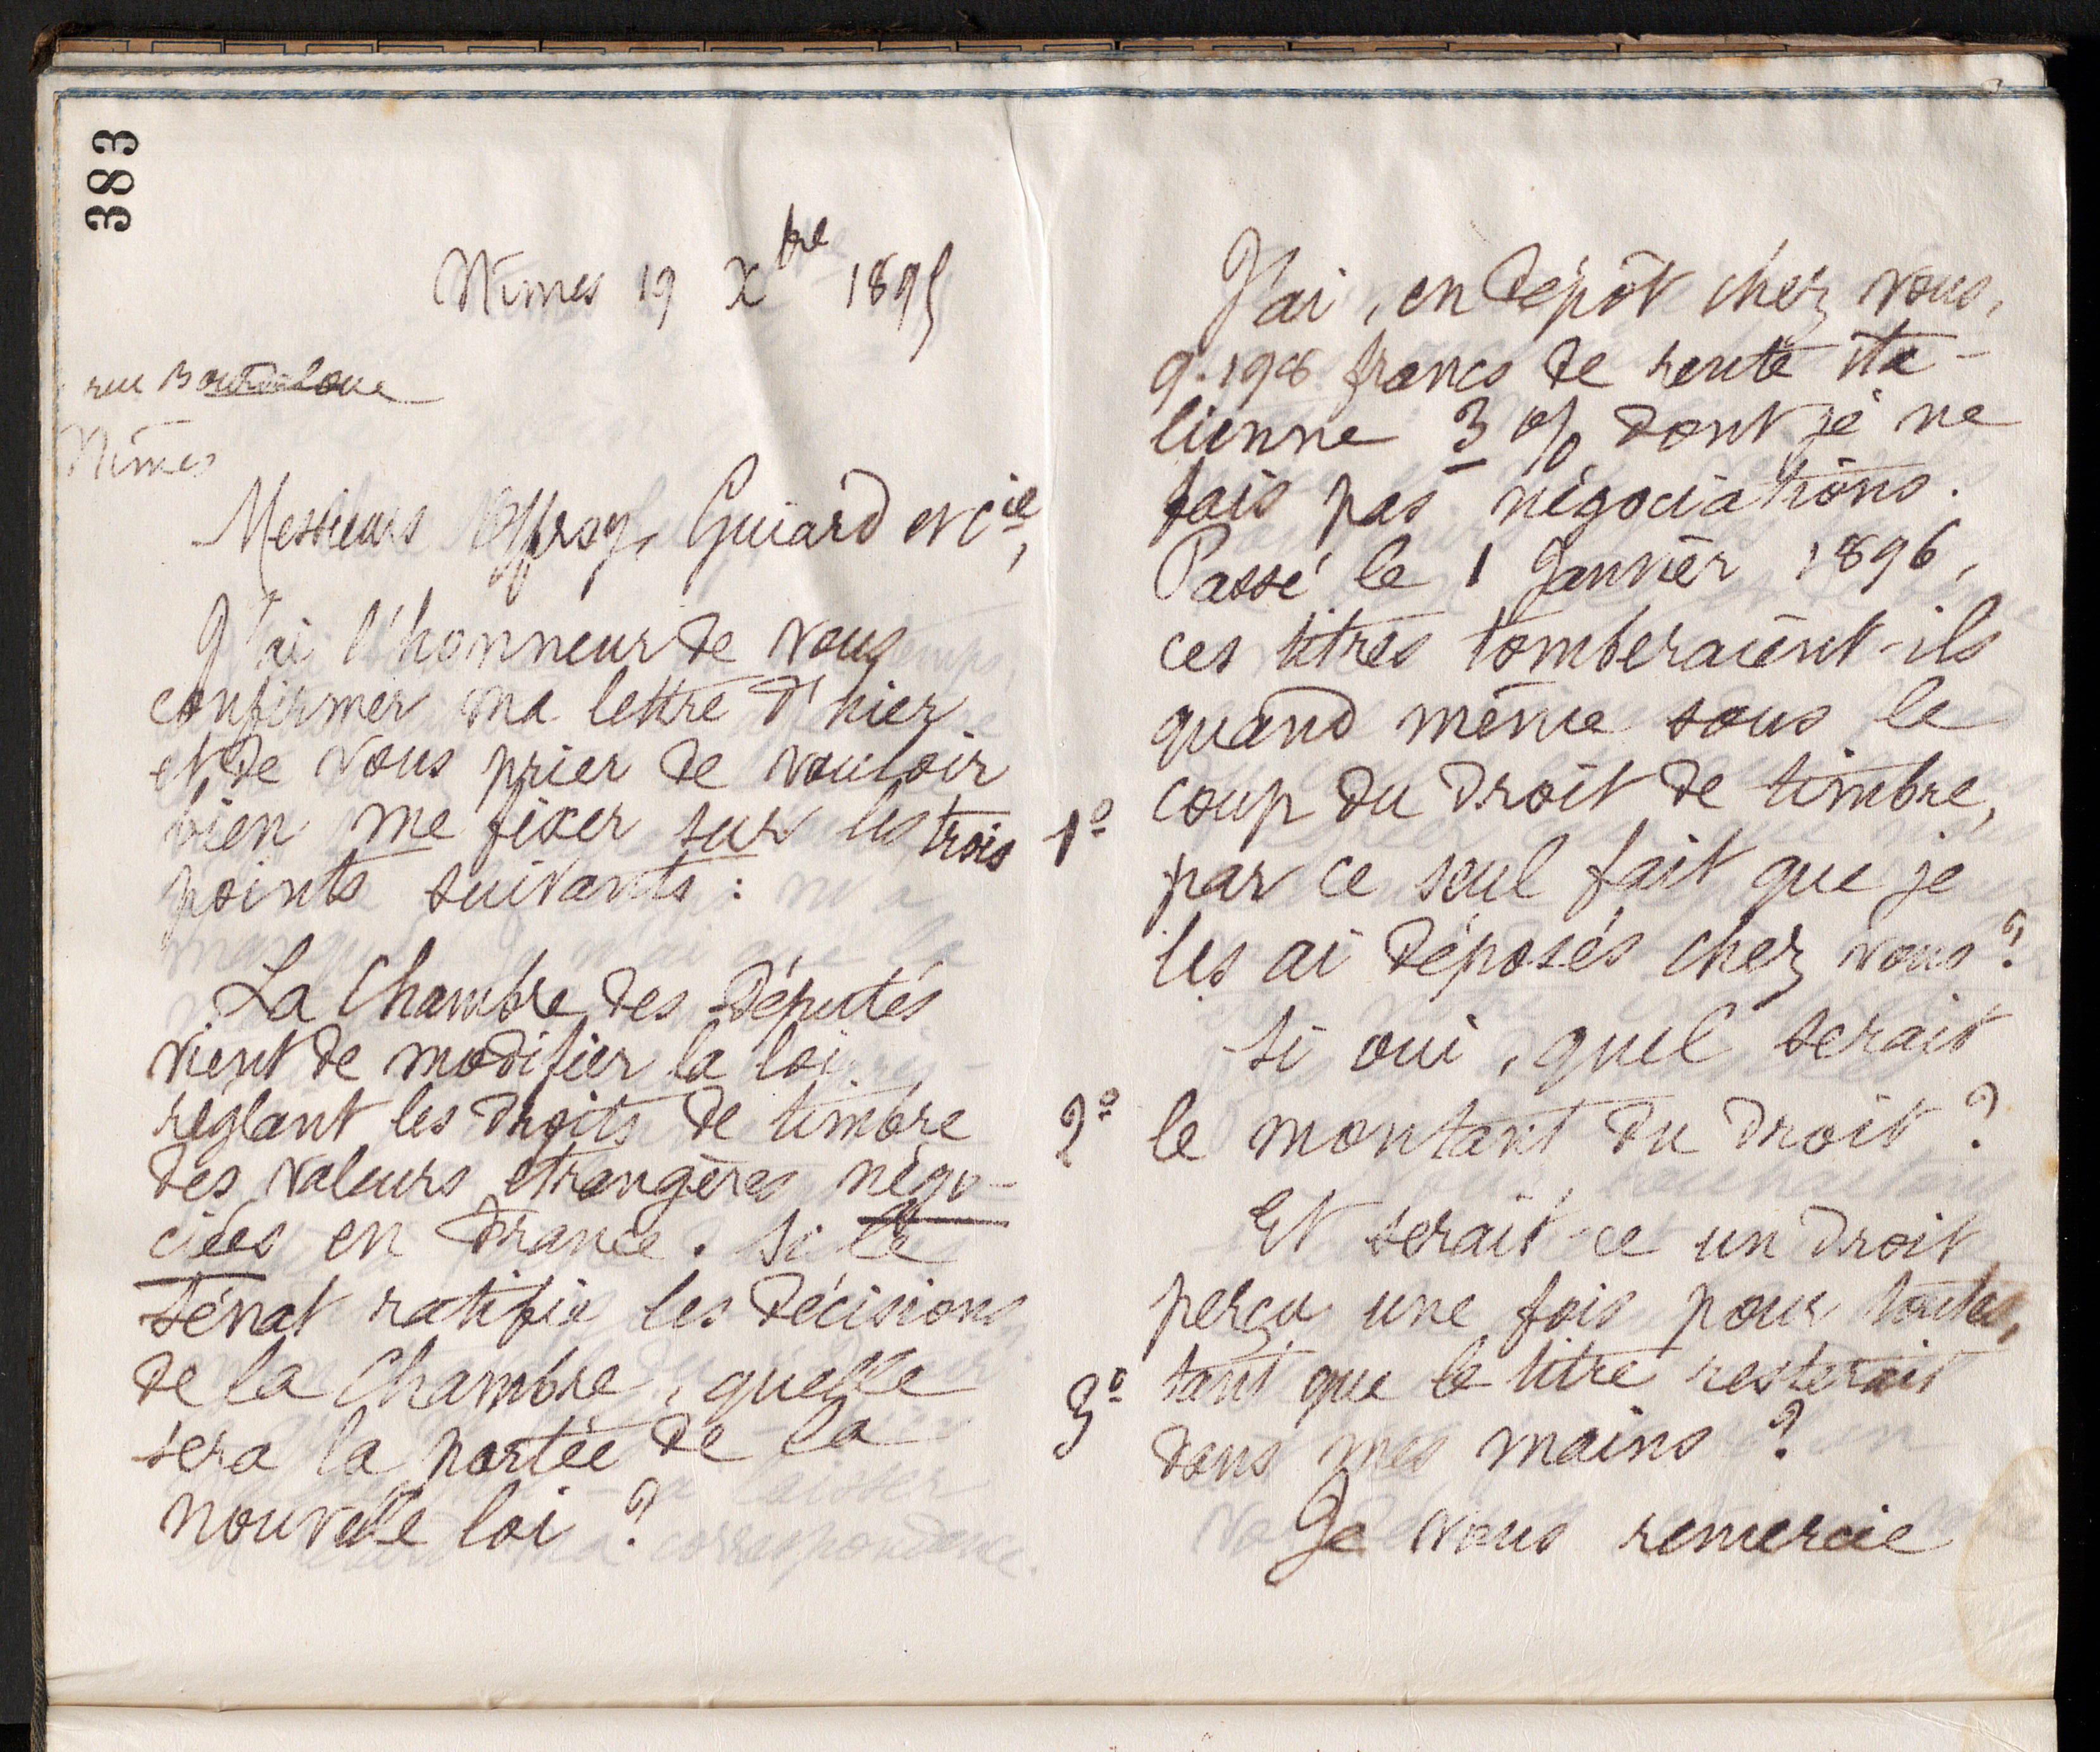 383
Nîmes 19 Xbre 1895
rue Bourdaloue
Nîmes
Messieurs Offroy, Guiard et Cie,
J'ai l'honneur de vous
confirmer ma lettre d'hier
et de vous prier de vouloir
bien me fixer sur les trois
points suivants :
La Chambre des Députés
vient de modifier la loi
réglant les droits de timbre
des valeurs étrangères négo-
ciées en France. Si le
Sénat ratifie les décisions
de la Chambre, quelle
sera la portée de la
nouvelle loi ?
J'ai, en dépôt chez vous,
9.198 francs de rente ita-
lienne 3 % dont je ne
fais pas négociations.
Passé le 1 Janvier 1896,
ces titres tomberaient-ils
quand même sous le
1º coup du droit de timbre,
par ce seul fait que je
les ai déposés chez vous ?
Si oui, quel serait
2º le montant du droit ?
Et serait-ce un droit
perçu une fois pour toutes,
3º tant que le titre resterait
dans mes mains ?
Je vous remercie